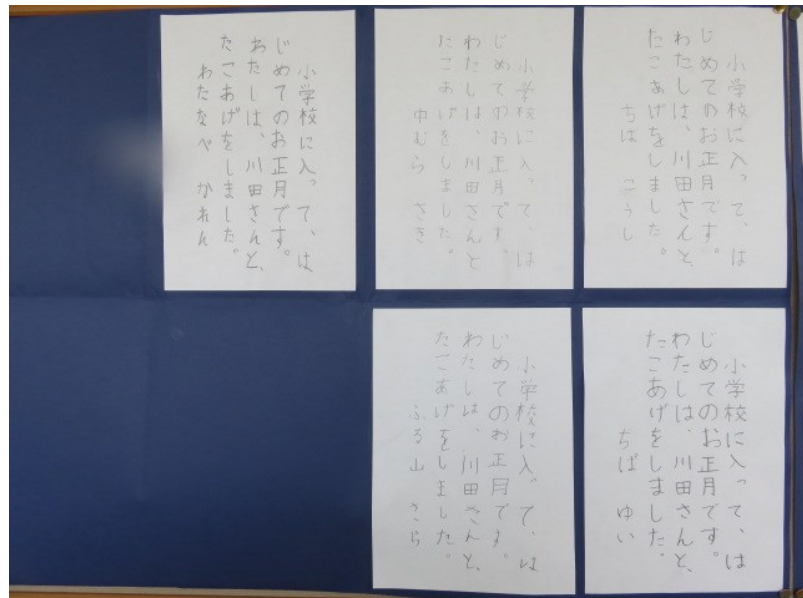 小学校に入って、は
じめてのお正月です。
わたしは、川田さんと、
たこあげをしました。
ちば こうし
小学校に入って、は
じめてのお正月です。
わたしは、川田さんと
たこあげをしました。
中むら さき
小学校に入って、は
じめてのお正月です。
わたしは、川田さんと、
たこあげをしました。
わたなべ かれん
小学校に入って、は
じめてのお正月です。
わたしは、川田さんと、
たこあげをしました。
ちば ゆい
小学校に入って、は
じめてのお正月です。
わたしは、川田さんと、
たこあげをしました。
ふる山 さら